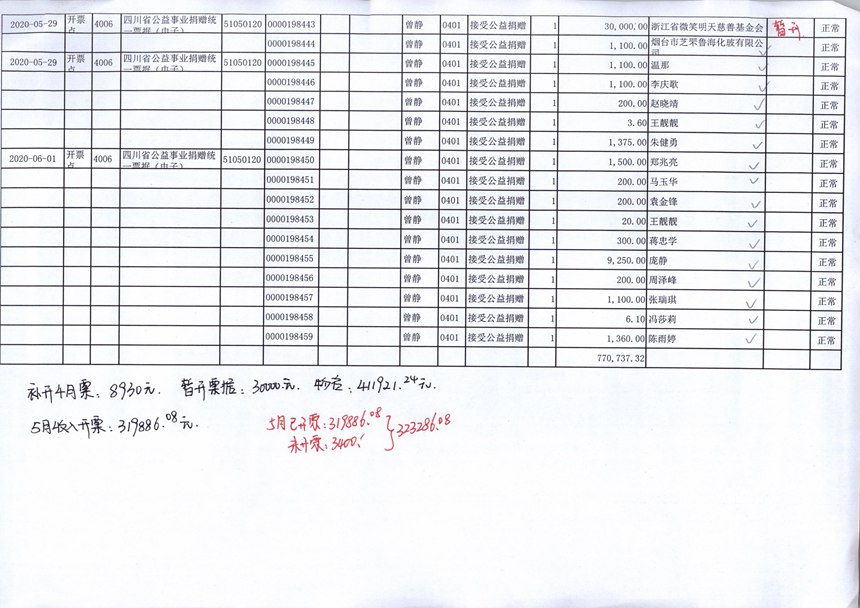 2020-05-29 开票点 4006 四川省公益事业捐赠统一票据（电子） 51050120 0000198443 曾静 0401 接受公益捐赠 1 30,000.00 浙江省微笑明天慈善基金会 暂开 正常
0000198444 曾静 0401 接受公益捐赠 1 1,100.00 烟台市芝罘鲁海化玻有限公司 正常
2020-05-29 开票点 4006 四川省公益事业捐赠统一票据（电子） 51050120 0000198445 曾静 0401 接受公益捐赠 1 1,100.00 温那 正常
0000198446 曾静 0401 接受公益捐赠 1 1,100.00 李庆歌 正常
0000198447 曾静 0401 接受公益捐赠 1 200.00 赵晓靖 正常
0000198448 曾静 0401 接受公益捐赠 1 3.60 王靓靓 正常
0000198449 曾静 0401 接受公益捐赠 1 1,375.00 朱健勇 正常
2020-06-01 开票点 4006 四川省公益事业捐赠统一票据（电子） 51050120 0000198450 曾静 0401 接受公益捐赠 1 1,500.00 郑兆亮 正常
0000198451 曾静 0401 接受公益捐赠 1 200.00 马玉华 正常
0000198452 曾静 0401 接受公益捐赠 1 200.00 袁金锋 正常
0000198453 曾静 0401 接受公益捐赠 1 20.00 王靓靓 正常
0000198454 曾静 0401 接受公益捐赠 1 300.00 蒋忠学 正常
0000198455 曾静 0401 接受公益捐赠 1 9,250.00 庞静 正常
0000198456 曾静 0401 接受公益捐赠 1 200.00 周泽峰 正常
0000198457 曾静 0401 接受公益捐赠 1 1,100.00 张瑞琪 正常
0000198458 曾静 0401 接受公益捐赠 1 6.10 冯莎莉 正常
0000198459 曾静 0401 接受公益捐赠 1 1,360.00 陈雨婷 正常
770,737.32
补开4月票：8930元． 暂开票据：30000元． 物资：411921.24元．
5月收入开票：319886.08元．
5月已开票：319886.08
未开票：3400.
323286.08